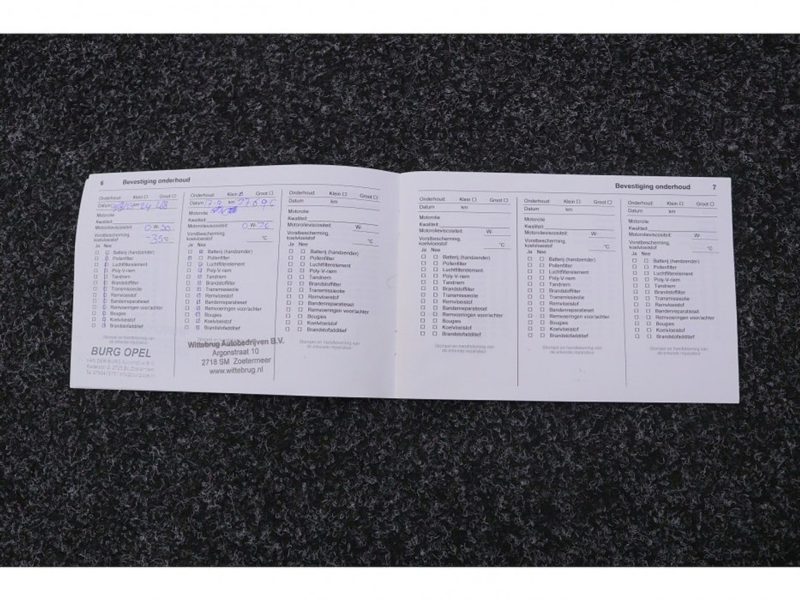 6 Bevestiging onderhoud
Onderhoud: Klein ☐ Groot ☐
Datum km
Motorolie
Kwaliteit:
Motorolieviscositeit: 0 W-
Vorstbescherming,
koelvloeistof -35 °C
Ja Nee
Batterij (handzender)
Pollenfilter
Luchtfilterelement
Poly-V-riem
Tandriem
Brandstoffilter
Transmissieolie
Remvloeistof
Bandenreparatieset
Remvoeringen voor/achter
Bougies
Koelvloeistof
Brandstofadditief
Stempel en handtekening van
de erkende reparateur
BURG OPEL
Onderhoud: Klein ☑ Groot ☐
Datum km 27696
Motorolie
Kwaliteit:
Motorolieviscositeit: 0 W-20
Vorstbescherming,
koelvloeistof °C
Ja Nee
Batterij (handzender)
Pollenfilter
Luchtfilterelement
Poly-V-riem
Tandriem
Brandstoffilter
Transmissieolie
Remvloeistof
Bandenreparatieset
Remvoeringen voor/achter
Bougies
Koelvloeistof
Brandstofadditief
Wittebrug Autobedrijven B.V.
Argonstraat 10
2718 SM Zoetermeer
www.wittebrug.nl
Onderhoud: Klein ☐ Groot ☐
Datum km
Motorolie
Kwaliteit:
Motorolieviscositeit: W-
Vorstbescherming,
koelvloeistof °C
Ja Nee
Batterij (handzender)
Pollenfilter
Luchtfilterelement
Poly-V-riem
Tandriem
Brandstoffilter
Transmissieolie
Remvloeistof
Bandenreparatieset
Remvoeringen voor/achter
Bougies
Koelvloeistof
Brandstofadditief
Stempel en handtekening van
de erkende reparateur
Bevestiging onderhoud 7
Onderhoud: Klein ☐ Groot ☐
Datum km
Motorolie
Kwaliteit:
Motorolieviscositeit: W-
Vorstbescherming,
koelvloeistof °C
Ja Nee
Batterij (handzender)
Pollenfilter
Luchtfilterelement
Poly-V-riem
Tandriem
Brandstoffilter
Transmissieolie
Remvloeistof
Bandenreparatieset
Remvoeringen voor/achter
Bougies
Koelvloeistof
Brandstofadditief
Stempel en handtekening van
de erkende reparateur
Onderhoud: Klein ☐ Groot ☐
Datum km
Motorolie
Kwaliteit:
Motorolieviscositeit: W-
Vorstbescherming,
koelvloeistof °C
Ja Nee
Batterij (handzender)
Pollenfilter
Luchtfilterelement
Poly-V-riem
Tandriem
Brandstoffilter
Transmissieolie
Remvloeistof
Bandenreparatieset
Remvoeringen voor/achter
Bougies
Koelvloeistof
Brandstofadditief
Stempel en handtekening van
de erkende reparateur
Onderhoud: Klein ☐ Groot ☐
Datum km
Motorolie
Kwaliteit:
Motorolieviscositeit: W-
Vorstbescherming,
koelvloeistof °C
Ja Nee
Batterij (handzender)
Pollenfilter
Luchtfilterelement
Poly-V-riem
Tandriem
Brandstoffilter
Transmissieolie
Remvloeistof
Bandenreparatieset
Remvoeringen voor/achter
Bougies
Koelvloeistof
Brandstofadditief
Stempel en handtekening van
de erkende reparateur